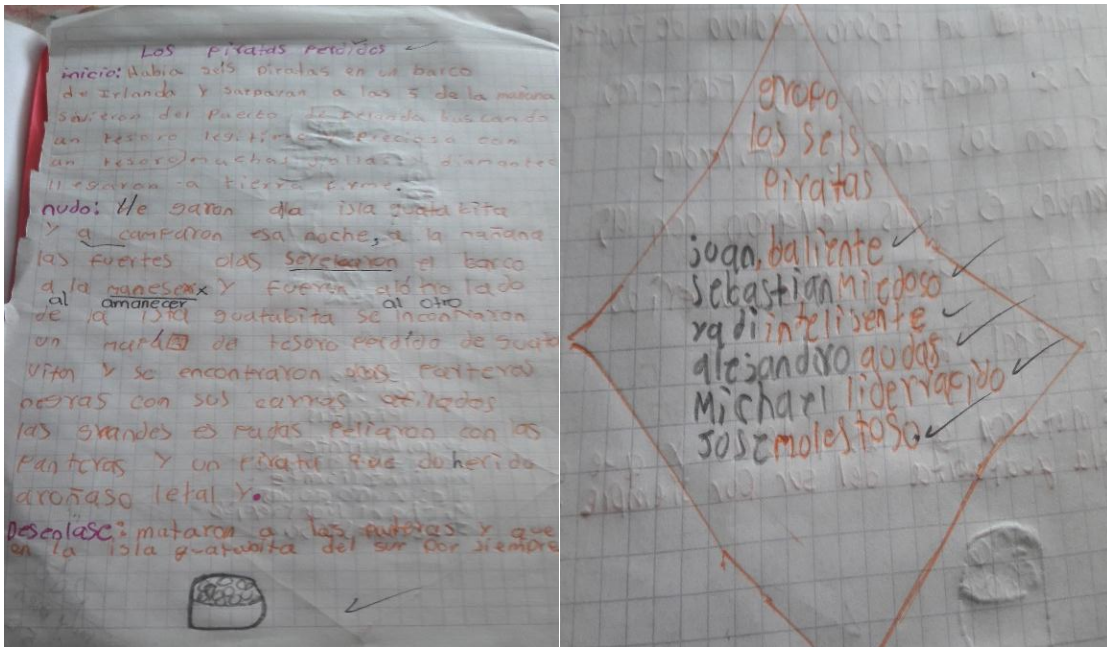 Los Piratas Perdidos
inicio: Habia seis piratas en un barco
de Irlanda y sarparan a las 5 de la mañana
del Puerto de buscando
un tesoro legitimo y precioso con
un tesoro muchas diamantes
llegaron a tierra firme.
nudo: lle garon a la isla guatabita
y a camparon esa noche, a la mañana
las fuertes olas serelearon el barco
a la maneser x y fueron alotro lado
al amanecer al otro
de la isla guatabita se incontraron
un de tesoro perdido de guata
vita y se encontraron dos Panteras
negras con sus carras afilados
las grandes es padas Peliaron con las
Panteras y un Pirata que do herido
aroñaso letal y.
Desenlase: mataron a las y que
en la isla guatabita del sur por siempre
grupo
los seis
Piratas
joan, baliente
sebastian miedoso
yadi intelijente
alejandro audas
Michael liderracido
jose molestoso.